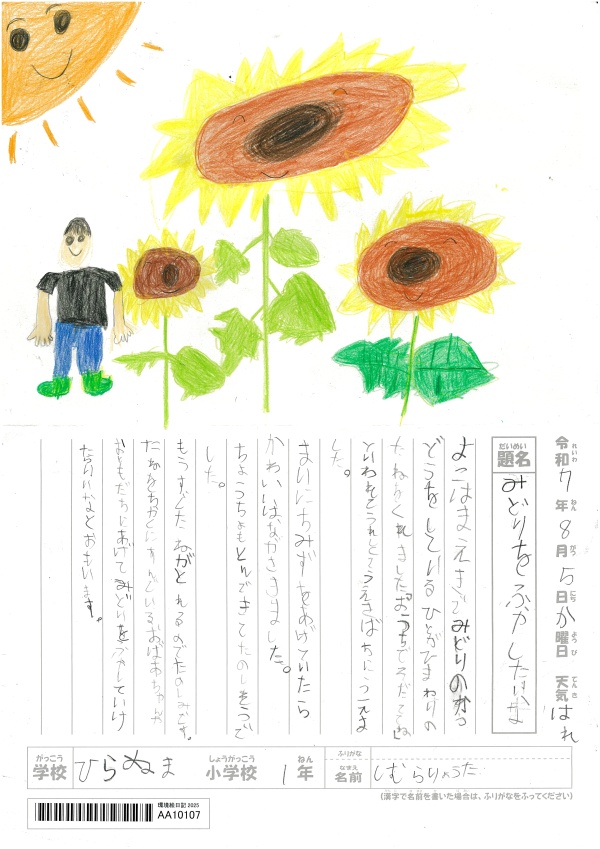 令和7年8月5日か曜日 天気はれ
れいわ ねん がつ にち ようび てんき
だいめい
題名 みどりをふやしたいな
よこはまえきでみどりのかつ
どうをしているひとがひまわりの
たねをくれました。「おうちでそだててね」
といわれてうれしくてうえきばちにうえま
した。
まいにちみずをあげていたら
かわいいはながさきました。
ちょうちょもとんできてたのしそうで
した。
もうすぐたねがとれるのでたのしみです。
たねをちかくにすんでいるおばあちゃんや
おともだちにあげてみどりをふやしていけ
たらいいなとおもいます。
がっこう しょうがっこう ねん ふりがな
学校 ひらぬま 小学校 1年 名前 しむらりょうた
なまえ
(漢字で名前を書いた場合は、ふりがなをふってください)
環境絵日記2025
AA10107